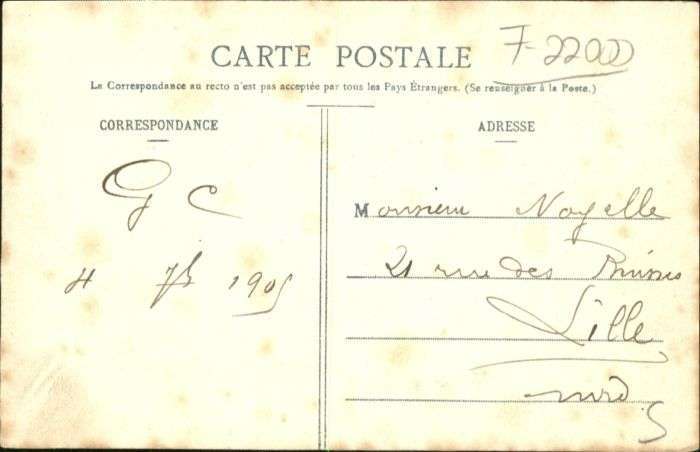 CARTE POSTALE
F-22000
La Correspondance au recto n'est pas acceptée par tous les Pays Étrangers. (Se renseigner à la Poste.)
CORRESPONDANCE
G C
4 7b 1905
ADRESSE
Monsieur Noyelle
21 rue des
Lille
nord